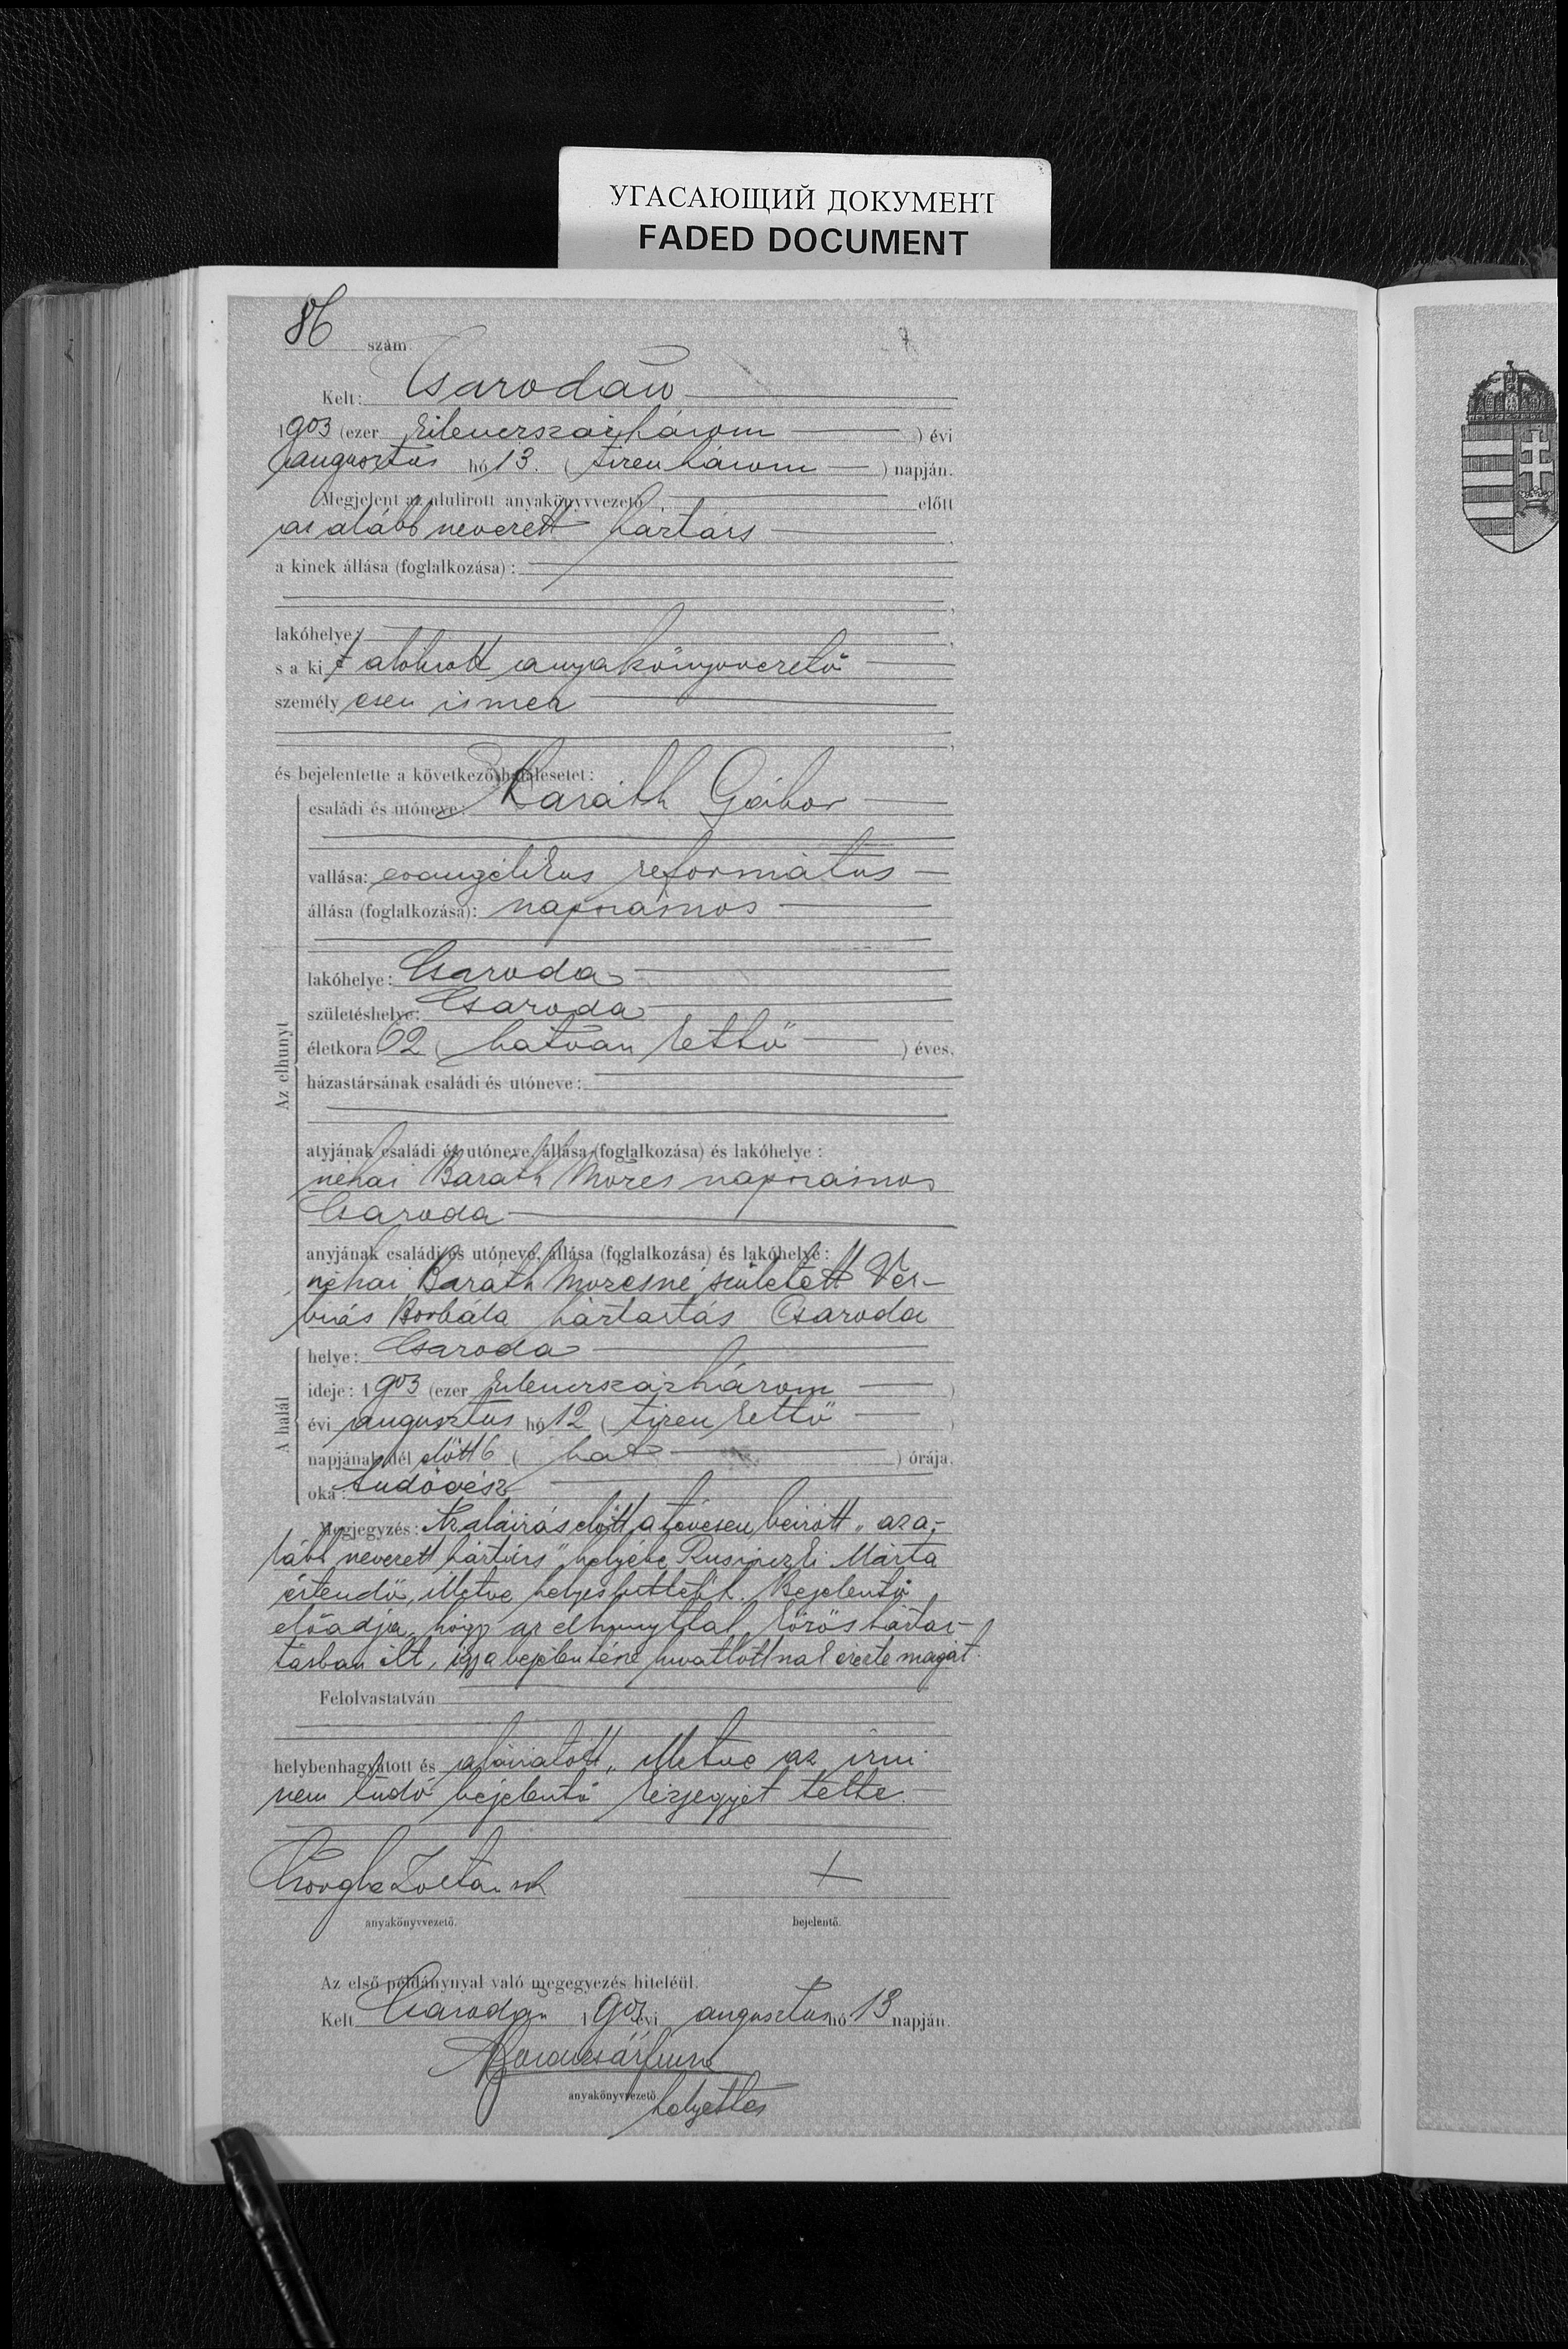 УГАСАЮЩИЙ ДОКУМЕНТ
FADED DOCUMENT
86 szám.
Kelt: Csarodán
1903 (ezer kilencszázhárom) évi
augusztus hó 13. (tizenhárom) napján.
Megjelent az alulirott anyakönyvvezető előtt
az alább nevezett háztárs
a kinek állása (foglalkozása):
lakóhelye:
s a kit alolirott anyakönyvvezető
személyesen ismer
és bejelentette a következő halálesetet:
családi és utóneve: Baráth Gábor
vallása: evangélikus református
állása (foglalkozása): napszámos
lakóhelye: Csaroda
születéshelye: Csaroda
életkora: 62 (hatvan kettő) éves.
házastársának családi és utóneve:
Az elhunyt
atyjának családi és utóneve, állása (foglalkozása) és lakóhelye:
néhai Baráth Mózes napszámos
Csaroda
anyjának családi és utóneve, állása (foglalkozása) és lakóhelye:
néhai Baráth Mózesné született Ver-
bás Borbála háztartás Csaroda
helye: Csaroda
ideje: 1903 (ezer kilencszázhárom)
évi augusztus hó 12 (tizen kettő)
A halál
napjának dél előtt 6 (hat) órája.
oka: tüdővész
Megjegyzés: Az aláirás előtt a tévesen beirott „az a-
lább nevezett háztárs" helyébe Márta
értendő, illetve helyesbittetik. Bejelentő
előadja, hogy az elhunyttal közös háztar-
tásban élt, igy a bejelentésre hivatottnak érezte magát.
Felolvastatván
helybenhagyatott és aláiratott, illetve az irni
nem tudó bejelentő kézjegyét tette.
Zoltán sk
+
anyakönyvvezető.
bejelentő.
Az első példánynyal való megegyezés hiteléül.
Kelt Csarodán 1903 évi augusztus hó 13 napján.
anyakönyvvezető
helyettes